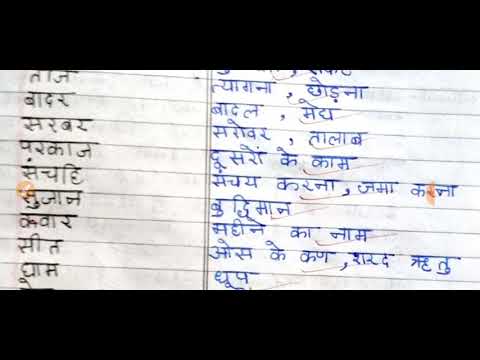 त्यागना , छोड़ना
बादर बादल , मेघ
सरबर सरोवर , तालाब
परकाज दूसरों के काम
संचहि संचय करना , जमा करना
सुजान बुद्धिमान
कवार महीने का नाम
सीत ओस के कण , शरद ऋतु
घाम धूप